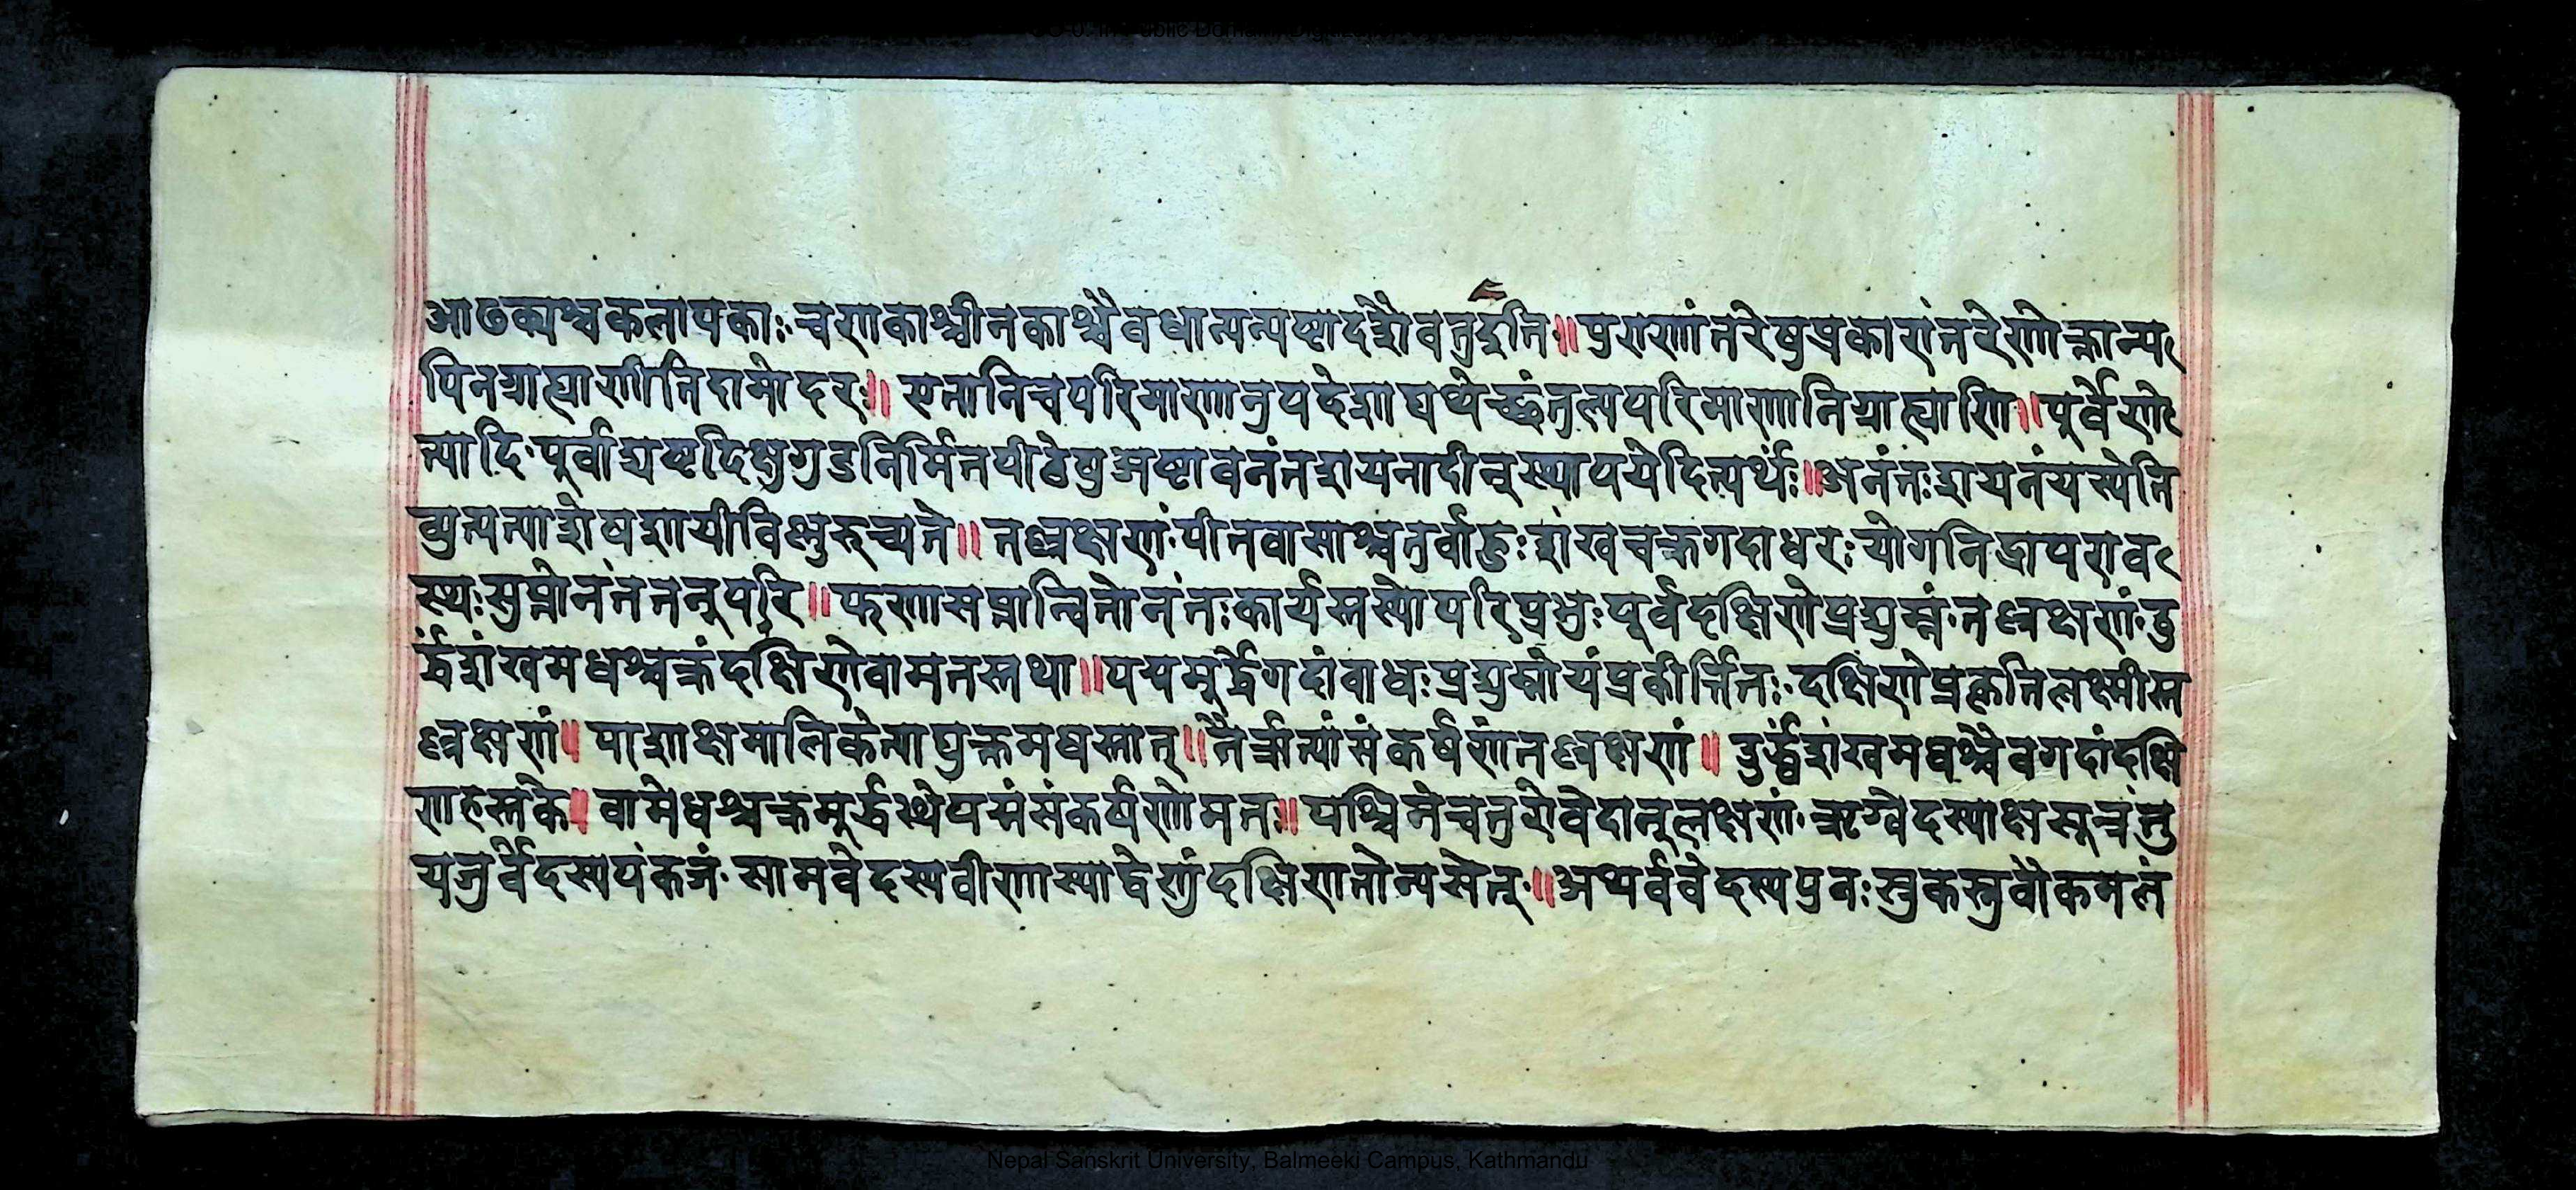 आढक्यश्चकलायकाः॰चणकाश्चीनकाश्चैवधान्यन्यष्टादशैवतुइति॰॥पुराणांतरेषुप्रकारांतरेणोक्तान्य
पिनग्राह्याणीतिदामोदरः॥ एतानिचपरिमाणानुपदेशाद्यथेच्छंतुल्यपरिमाणानिग्राह्याणि॥पूर्वेणे
त्यादि॰पूर्वाद्यष्टदिक्षुगुडनिर्मितपीठेषुअष्टावनंतशयनादीन्स्थापयेदित्यर्थः॥अनंतःशयनंयस्येति
व्युत्पत्याशेषशायीविष्णुरुच्यते॥ तल्लक्षणं॰पीतवासाश्चतुर्बाहुःशंखचक्रगदाधरःयोगनिद्रापराव
स्थःसुप्तोनंततनूपरि॥फणासप्तान्वितोनंतःकार्यस्तस्योपरिप्रभुःपूर्वदक्षिणेप्रद्युम्नं॰तल्लक्षणं॰उ
र्द्ध्वंशंखमधश्चक्रंदक्षिणेवामतस्तथा॥पद्ममूर्द्ध्वेगदांवाधःप्रद्युम्नोयंप्रकीर्त्तितः॰दक्षिणेप्रकृतिलक्ष्मीस्त
ल्लक्षणं॥ पाशाक्षमालिकेत्याद्युक्तमधस्तात्॥नैर्ऋत्यांसंकर्षणंतल्लक्षणं॥ उर्द्ध्वंशंखमधश्चैवगदांदक्षि
णहस्तके॥ वामेधश्चक्रमूर्द्ध्वस्थेपद्मंसंकर्षणोमतः॥ पश्चिमेचतुरोवेदान्लक्षणं॰ऋग्वेदस्याक्षसूत्रंतु
यजुर्वेदस्यपंकजं॰सामवेदस्यवीणास्याद्वेणुंदक्षिणतोन्यसेत्॰॥अथर्ववेदस्यपुनःस्रुकस्रुवौकमलं
Nepal Sanskrit University, Balmeeki Campus, Kathmandu